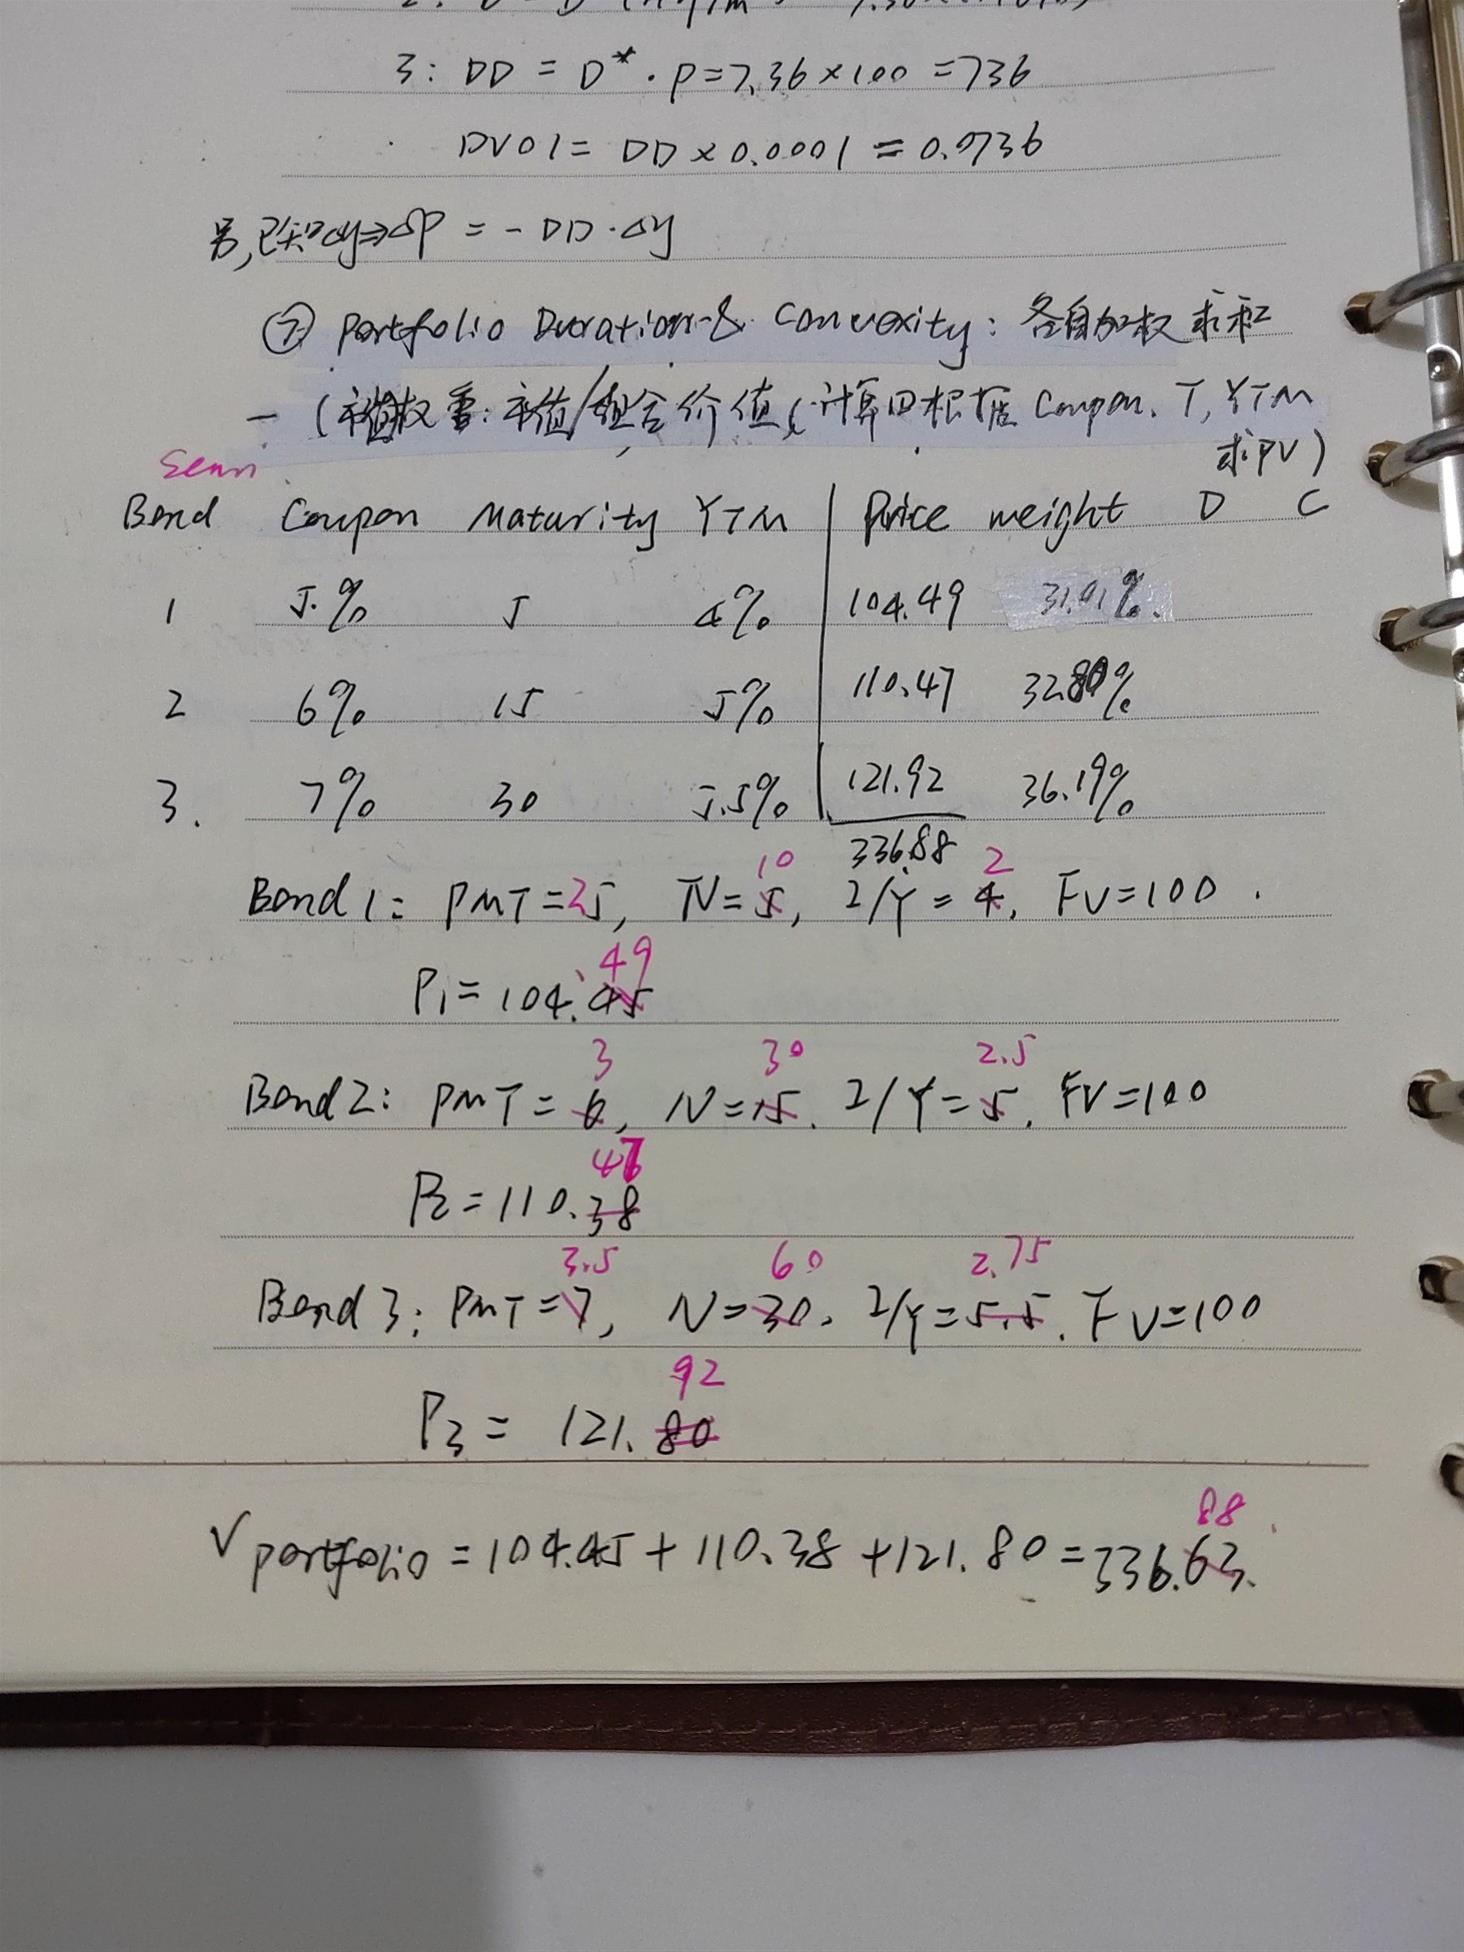 3: DD = D* · P = 7.36 × 100 = 736
DV01 = DD × 0.0001 = 0.0736
另,已知Δy⇒ΔP = - DD · Δy
⑦ Portfolio Duration & Convexity: 各自加权求和
- (市值权重: 市值/组合价值, 计算四根据 Coupon. T, YTM
求PV)
Semi
Bond Coupon Maturity YTM Price weight D C
1 5.% 5 4% 104.49 31.01%.
2 6% 15 5% 110.47 32.80%
3. 7% 30 5.5% 121.92 36.19%
336.88
10 2
Bond 1: PMT = 25, N = 5, I/Y = 4, FV = 100.
49
P1 = 104.45
3 30 2.5
Bond 2: PMT = 6, N = 15. I/Y = 5. FV = 100
47
P2 = 110.38
3.5 60 2.75
Bond 3: PMT = 7, N = 30. I/Y = 5.5. FV = 100
92
P3 = 121.80
88
V portfolio = 104.45 + 110.38 + 121.80 = 336.63.